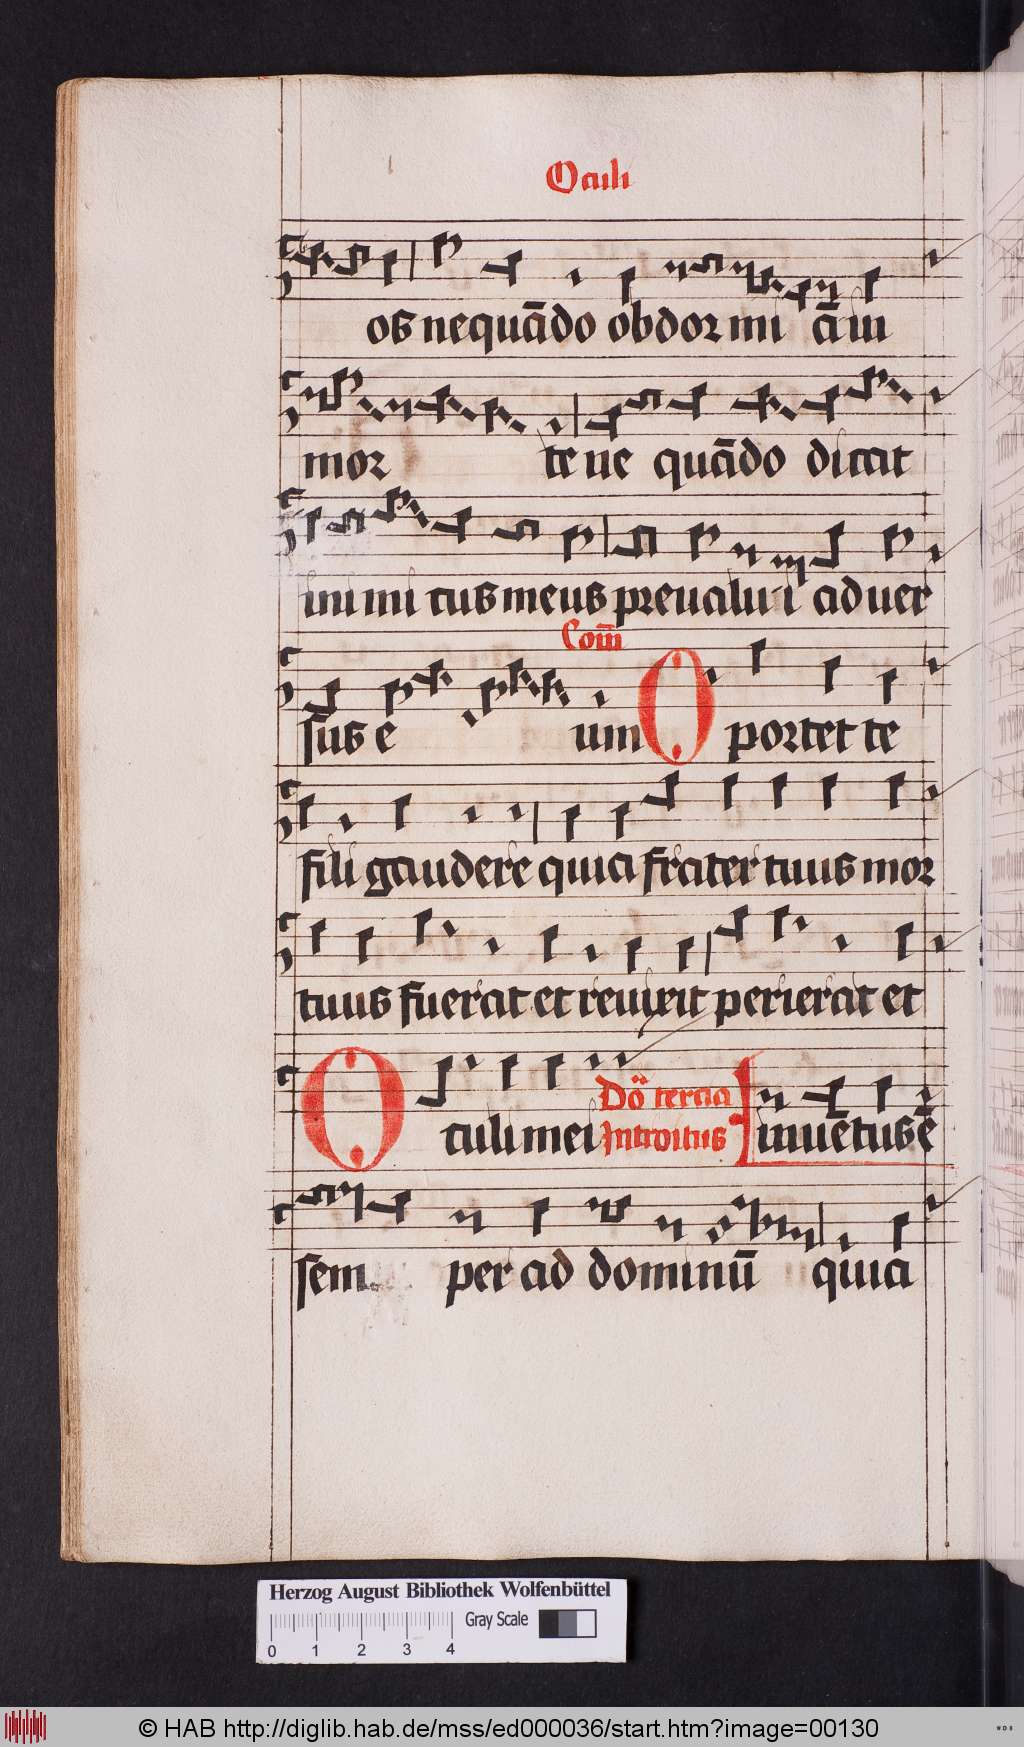 Oculi
os nequãdo obdor mi ã in
mor te ne quãdo dicat
ini mi cus meus preualu i aduer
Com̃
sus e um O portet te
fili gaudere quia frater tuus mor
tuus fuerat et reuixit perierat et
O culi mei Dõ tercia Introitus inuẽtus ẽ
sem per ad dominũ quia
Herzog August Bibliothek Wolfenbüttel
Gray Scale
0 1 2 3 4
© HAB http://diglib.hab.de/mss/ed000036/start.htm?image=00130